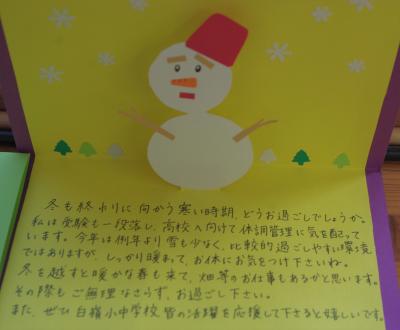 冬も終わりに向かう寒い時期、どうお過ごしでしょうか。
私は受験も一段落し、高校へ向けて体調管理に気を配って
います。今年は例年より雪も少なく、比較的過ごしやすい環境
ではありますが、しっかり暖まって、お体にお気をつけ下さいね。
冬を越すと暖かな春も来て、畑等のお仕事もあるかと思います。
その際もご無理なさらず、お過ごし下さい。
また、ぜひ白積小中学校皆の活躍を応援して下さると嬉しいです。